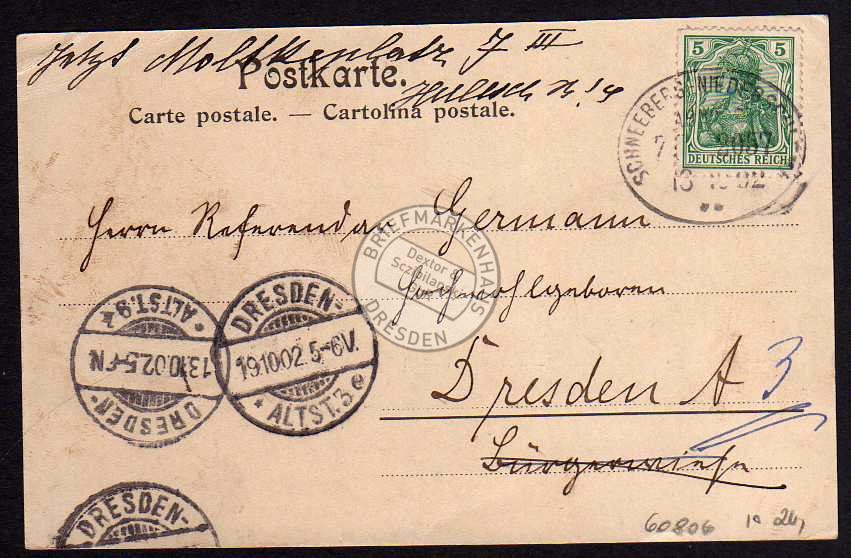 Jetzt Moltkeplatz 7 III
Postkarte.
Carte postale. — Cartolina postale.
5 5
DEUTSCHES REICH
SCHNEEBERG-NIEDERSCHL
Herrn Referendar Germann
Hochwohlgeboren
Dresden A 3
Bürgerwiese
BRIEFMARKENHAUS
DRESDEN
DRESDEN-
19.10.02. 5-6V.
* ALTST. 3 e
DRESDEN-
13.10.02. 5-6N.
* ALTST. 9 z
DRESDEN-
60806